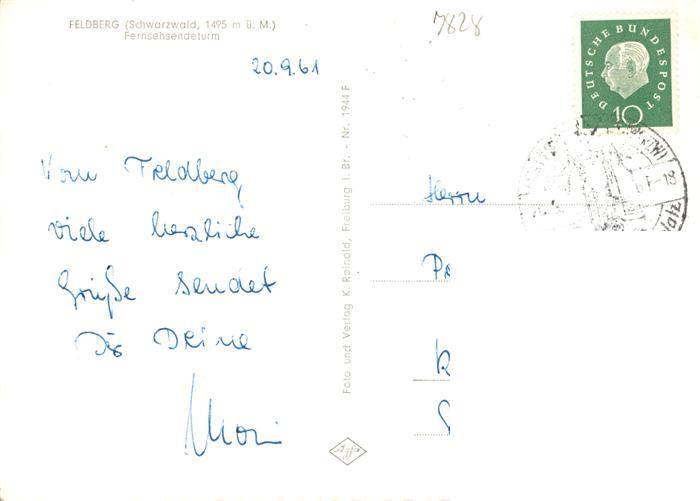 FELDBERG (Schwarzwald, 1495 m ü. M.)
Fernsehsendeturm
7828
20.9.61
Vom Feldberg
viele herzliche
Grüße sendet
Dir Deine
Foto und Verlag K. Reinold, Freiburg i. Br. - Nr. 1944 F
Agfa
DEUTSCHE BUNDESPOST
10
Herrn